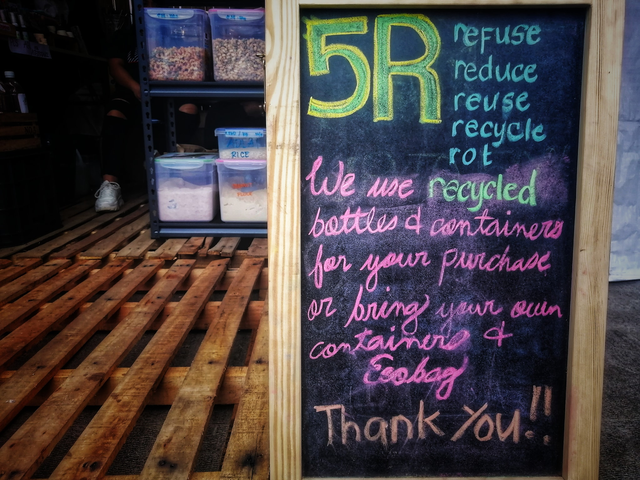 5R
refuse
reduce
reuse
recycle
rot
We use recycled
bottles & containers
for your purchase
or bring your own
containers &
Ecobag
Thank You!!
RICE